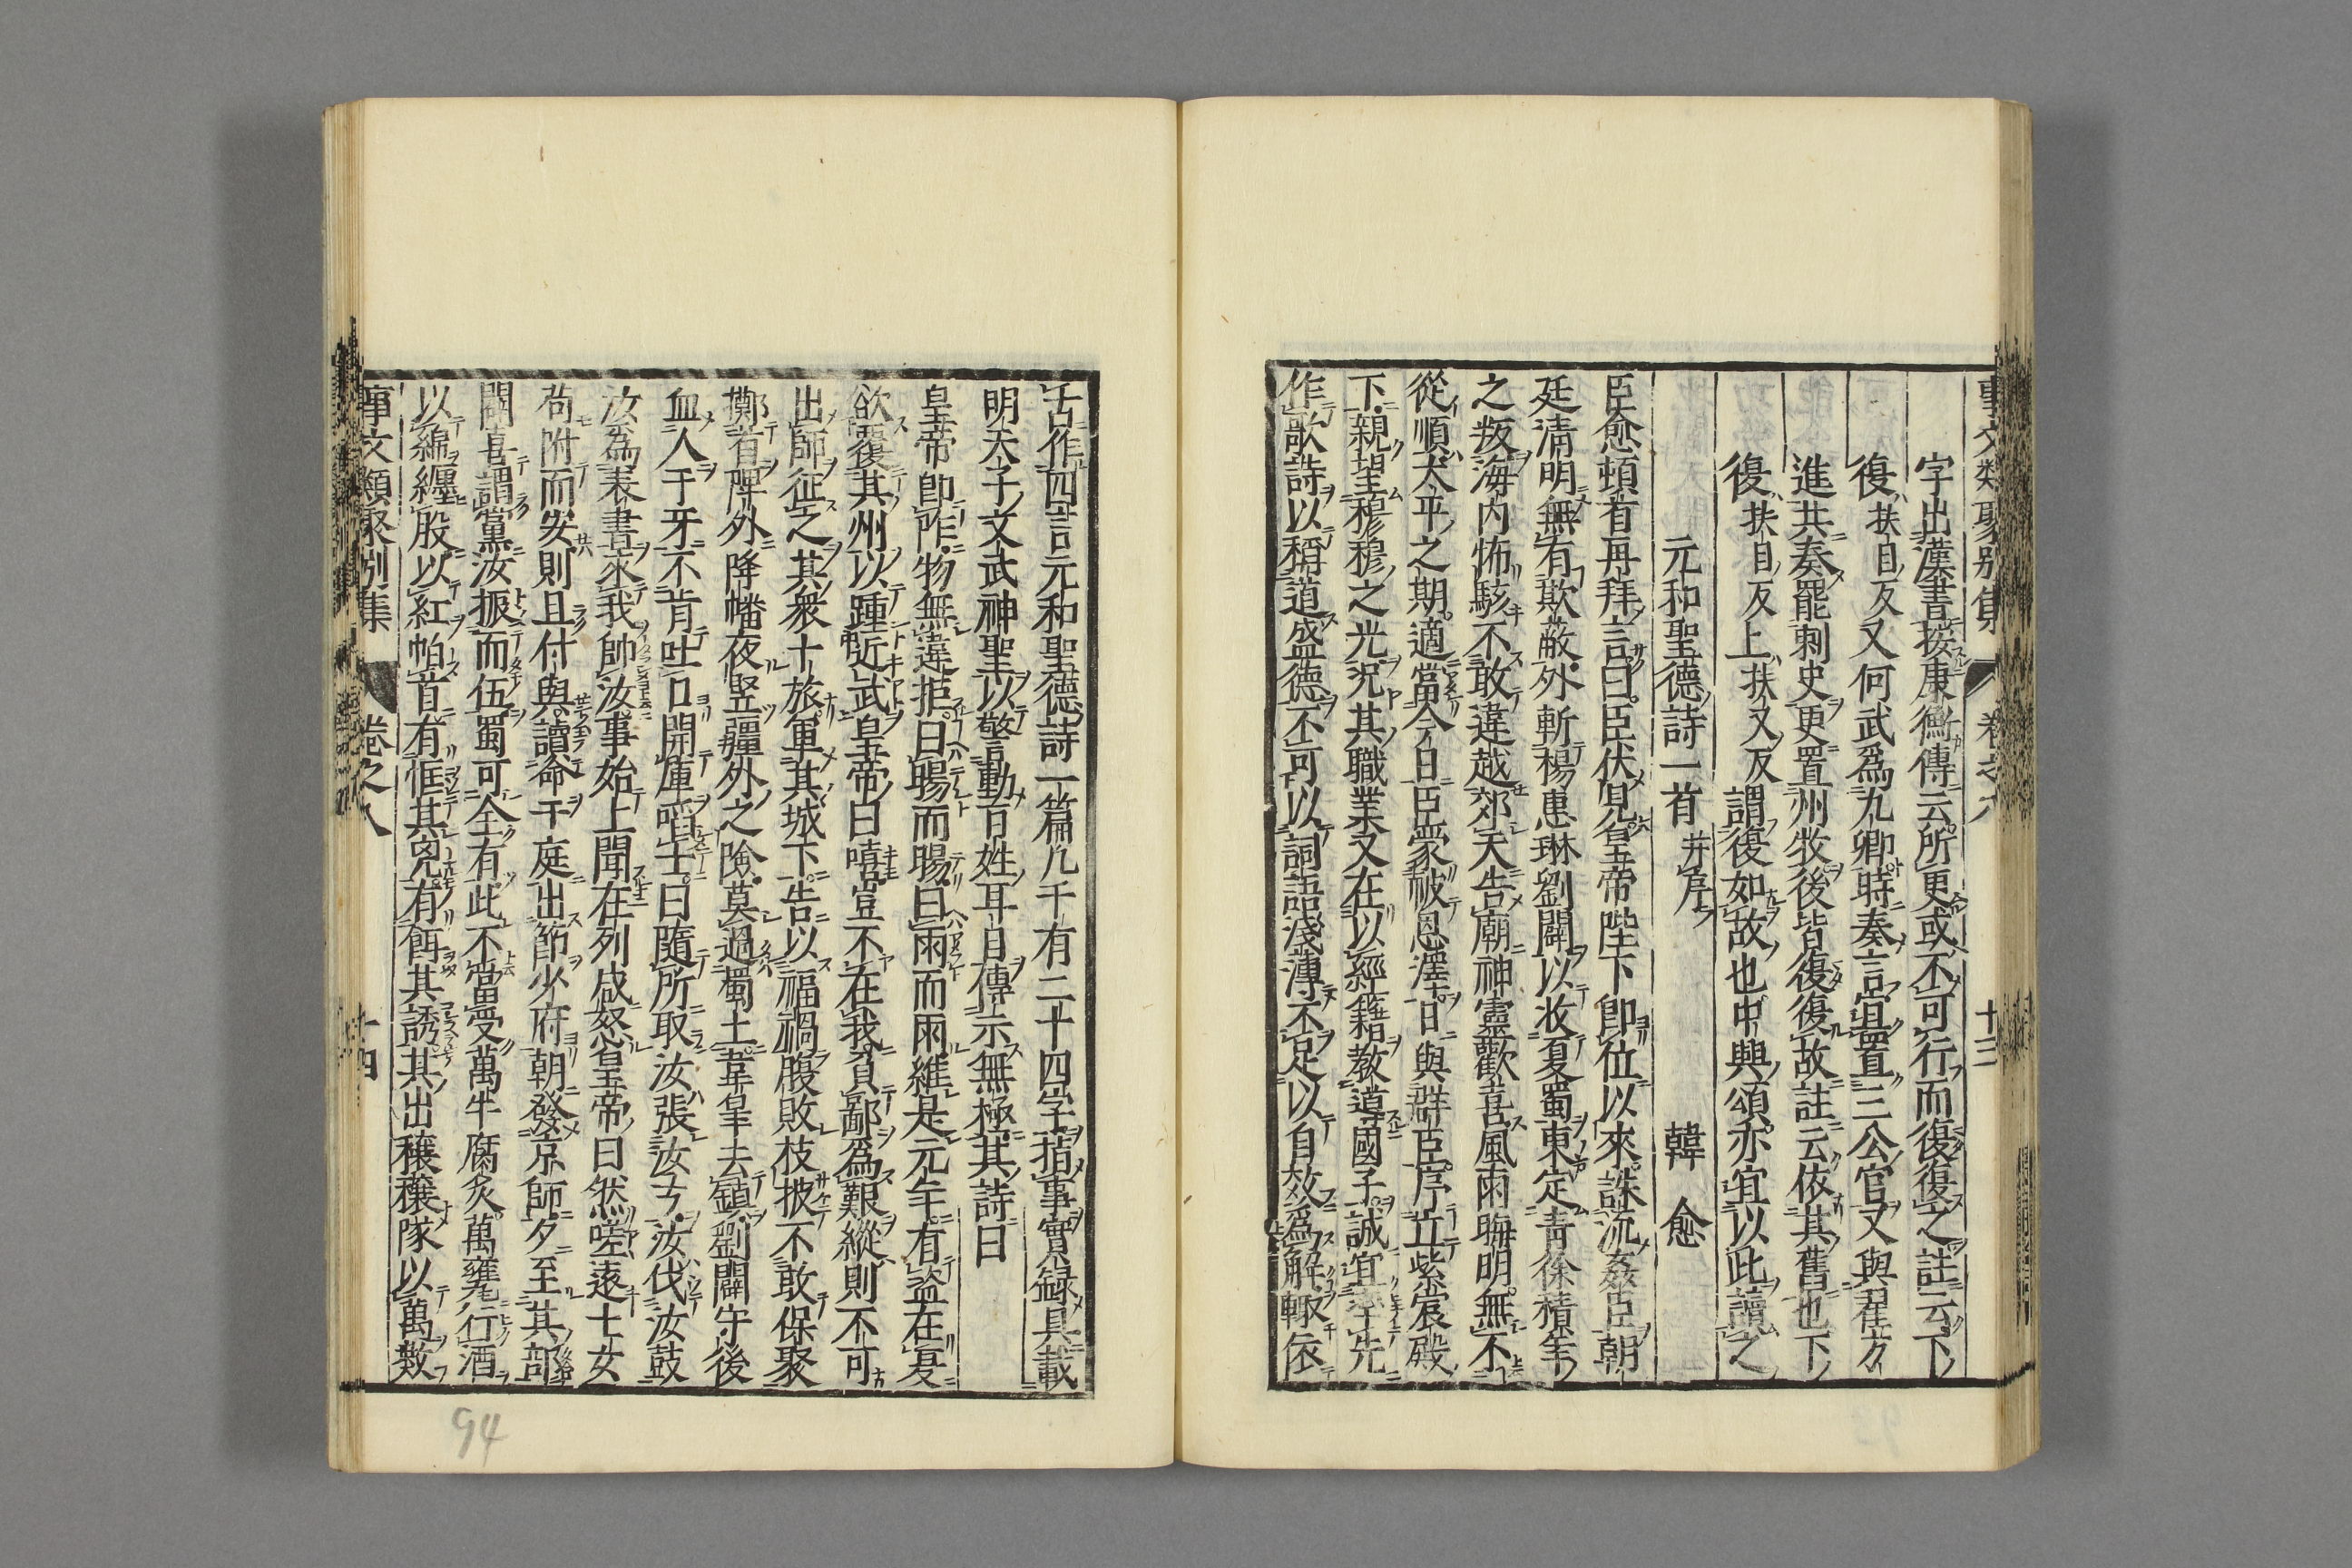 事文類聚別集 卷之八 十三
字出漢書按康衡傳云所更或不可行而復復之註云下
復扶目反又何武爲九卿時奏言宜置三公官又與翟方
進共奏罷刺史更置州牧後皆復復故註云依其舊也下
復扶目反上扶又反謂復如故也中興頌亦宜以此讀之
元和聖德詩一首并序 韓愈
臣愈頓首再拜言曰臣伏見皇帝陛下即位以來誅流姦臣朝
廷清明無有欺蔽外斬楊惠琳劉闢以收夏蜀東定青徐積年
之叛海内怖駭不敢違越郊天告廟神靈歡喜風雨晦明無不
從順太平之期適當今日臣蒙被恩澤日與群臣序立紫宸殿
下親望穆穆之光況其職業又在以經籍教導國子誠宜率先
作歌詩以稱道盛德不可以詞語淺薄不足以自效爲解輒依
古作四言元和聖德詩一篇凡千有二十四字指事實錄具載
明天子文武神聖以警動百姓耳目傳示無極其詩曰
皇帝即阼物無違拒曰暘而暘曰雨而雨維是元年有盜在夏
欲覆其州以踵近武皇帝曰嘻豈不在我負鄙爲艱縱則不可
出師征之其衆十旅軍其城下告以福禍腹敗枝披不敢保聚
擲首陴外降幡夜竪疆外之險莫過蜀土韋皐去鎮劉闢守後
血人于牙不肯吐口開庫啗士曰隨所取汝張汝弓汝伐汝鼓
汝爲表書求我帥汝事始上聞在列咸怒皇帝曰然嗟遠士女
苟附而安則且付與讀命于庭出節少府朝發京師夕至其部
闢喜謂黨汝振而伍蜀可全有此不當受萬牛腐炙萬甕行酒
以綿纏股以紅帕首有恇其兇有餌其誘其出穰穰隊以萬數
事文類聚別集 卷之八 十四
94